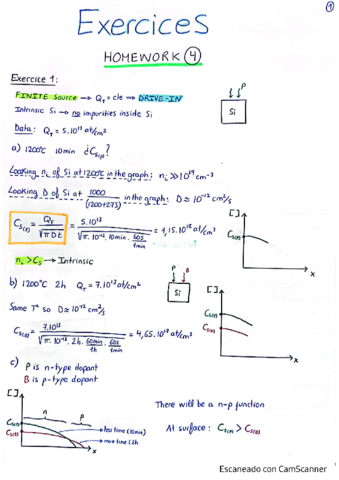 ①
Exercices
HOMEWORK ④
Exercice 1:
FINITE Source → Q_T = cte ⇒ DRIVE-IN
P
Si
Intrinsic Si → no impurities inside Si
Data: Q_T = 5.10¹³ at/cm²
a) 1200°C 10min ¿C_S(P)?
Looking n_i of Si at 1200°C in the graph: n_i >> 10¹⁹ cm⁻³
Looking D of Si at 1000/(1200+273) in the graph: D ≈ 10⁻¹² cm²/s
C_S(P) = Q_T/√(π D t) = 5.10¹³/√(π. 10⁻¹². 10min. 60s/1min) = 1,15.10¹⁸ at/cm³
[ ]
C_S(P)
x
n_i > C_S → Intrinsic
b) 1200°C 2h Q_T = 7.10¹³ at/cm²
P B
Si
Same Tª so D ≈ 10⁻¹² cm²/s
C_S(B) = 7.10¹³/√(π. 10⁻¹². 2h. 60min/1h. 60s/1min) = 4,65.10¹⁷ at/cm³
[ ]
C_S(P)
C_S(B)
x
c) P is n-type dopant
B is p-type dopant
[ ]
n p
C_S(P)
C_S(B)
less time (10min)
more time (2h)
x
There will be a n-p junction
At surface: C_S(P) > C_S(B)
Escaneado con CamScanner